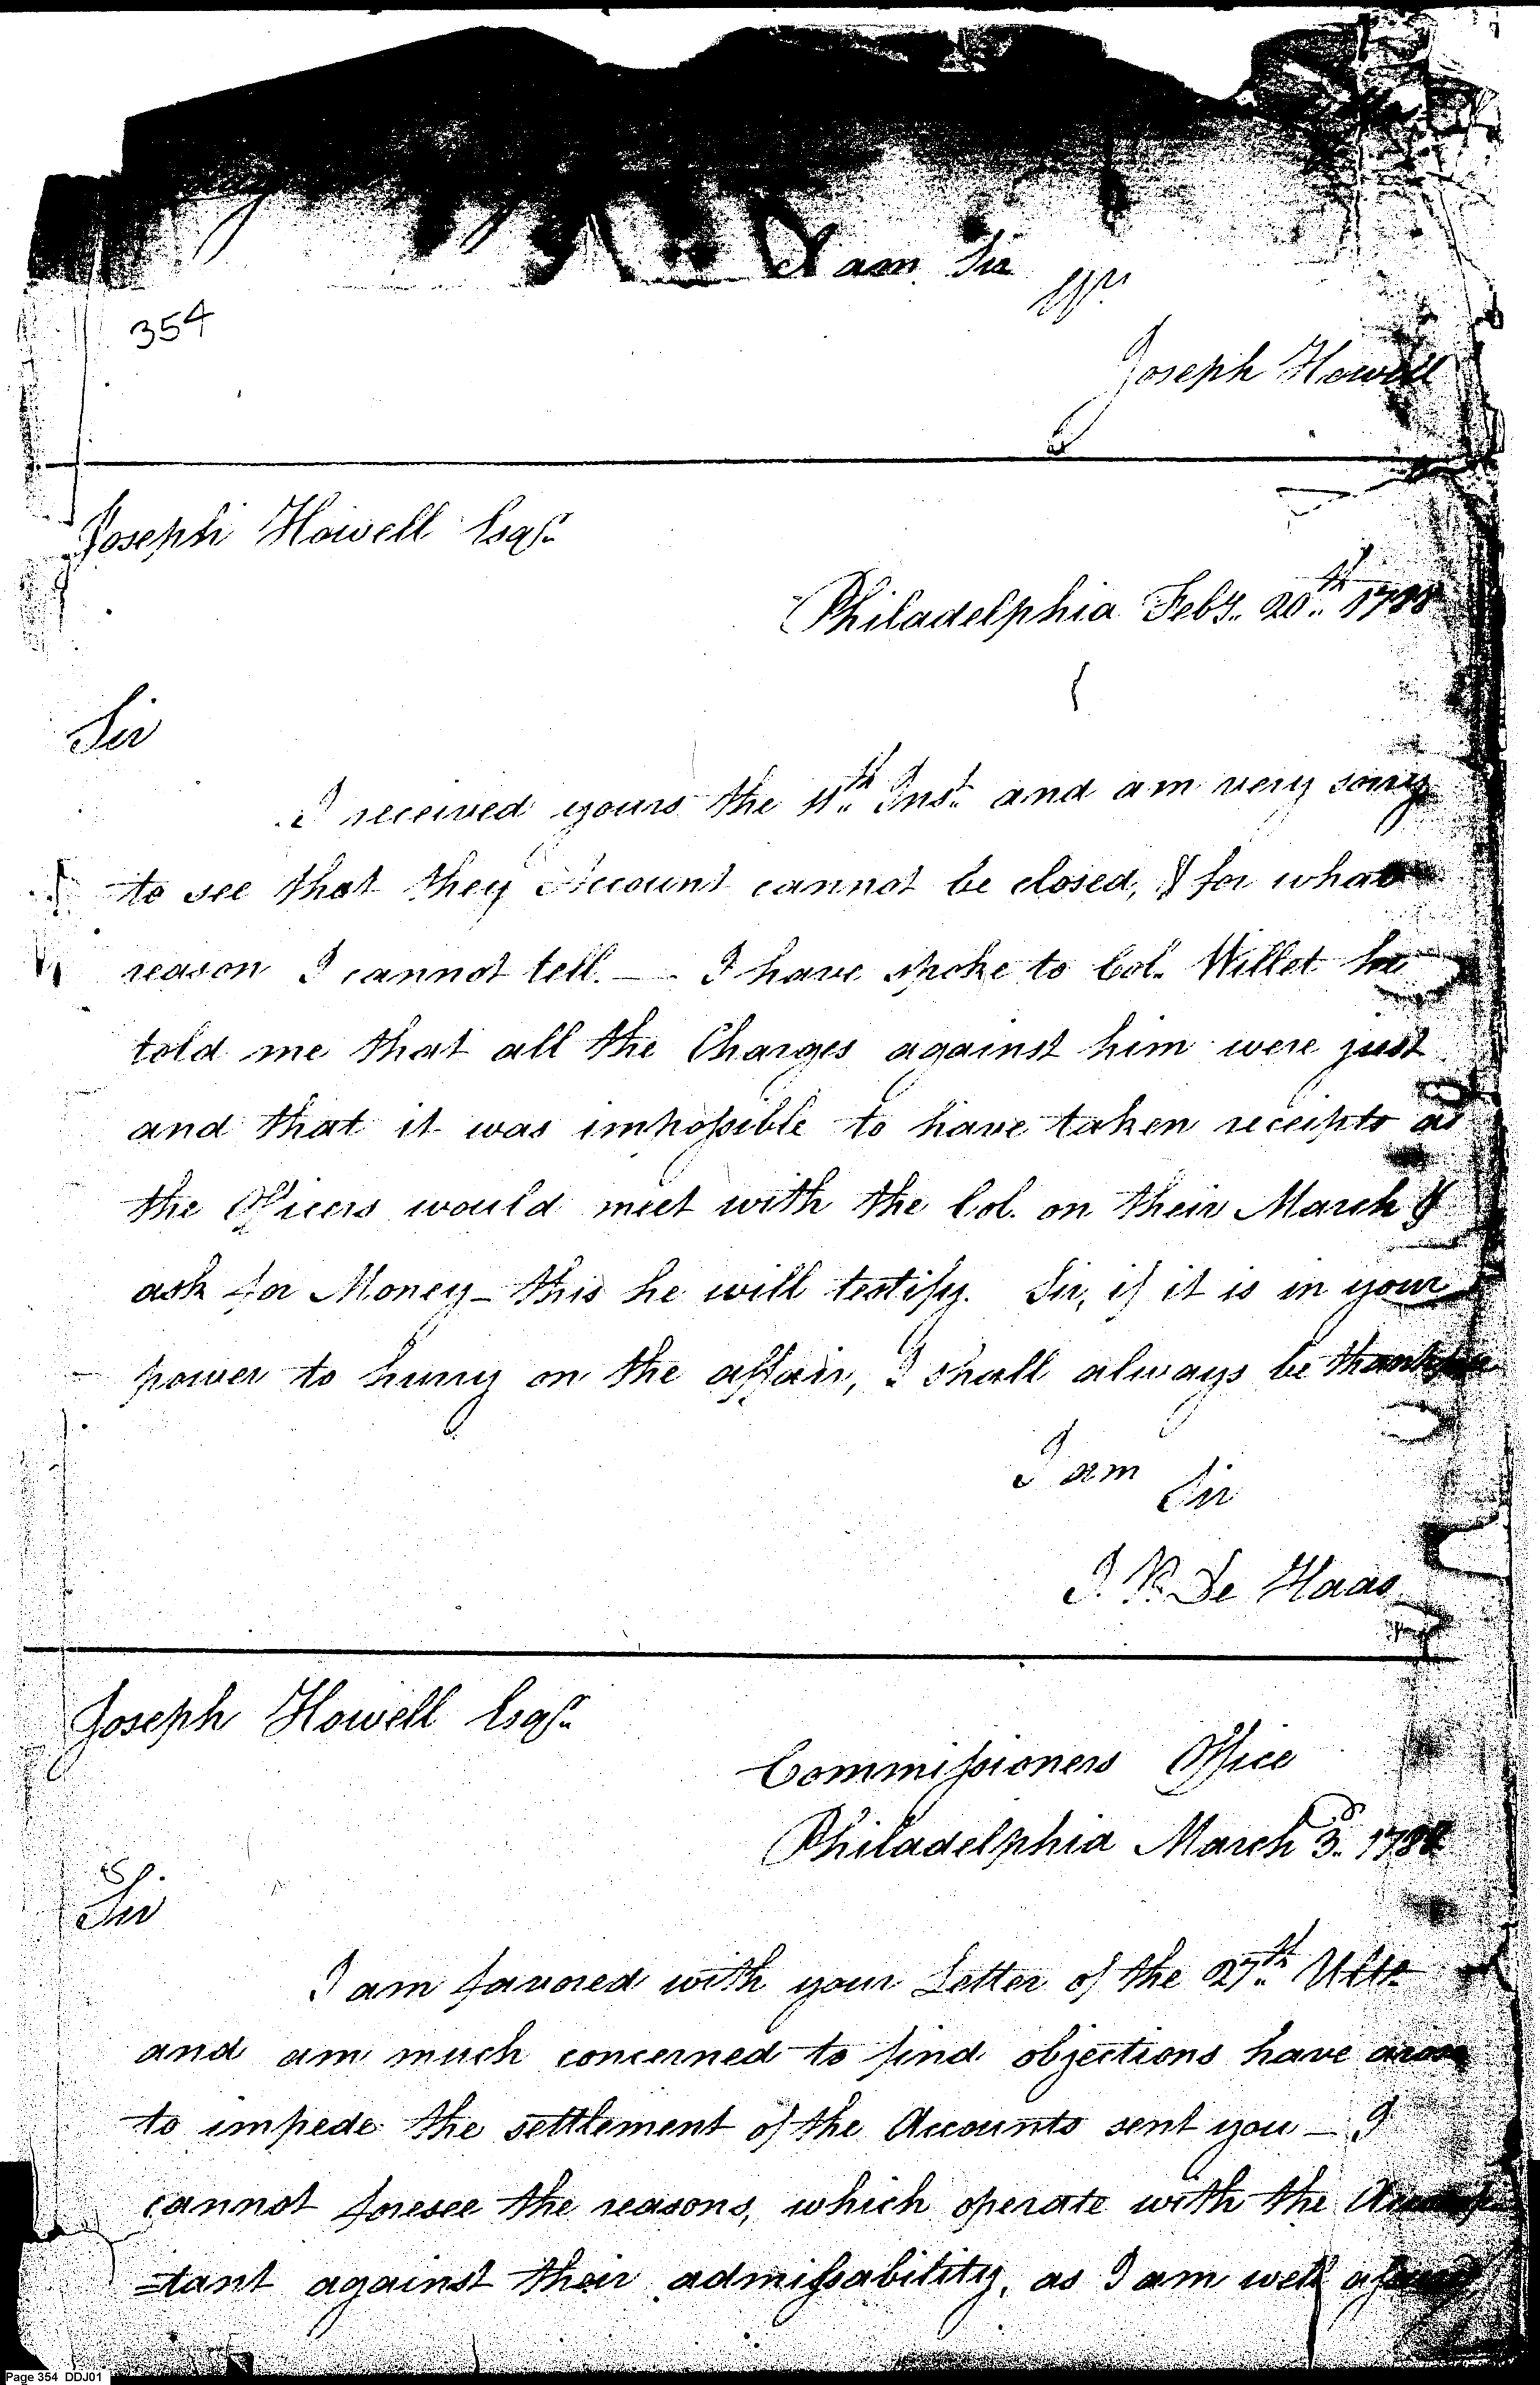 I am Sir
354
Joseph Howell
Joseph Howell Esqr.
Philadelphia Feby. 20th. 1788
Sir
I received yours the 11th. Inst. and am very sorry
to see that they Account cannot be closed, & for what
reason I cannot tell. — I have spoke to Col. Willet he
told me that all the Charges against him were just
and that it was impossible to have taken receipts as
the Officers would meet with the Col. on their March &
ask for Money — this he will testify. Sir, if it is in your
power to hurry on the affair, I shall always be thankful
I am
Sir
J. P. De Haas
Joseph Howell Esqr.
Commissioners Office
Philadelphia March 3d. 1788
Sir
I am favored with your Letter of the 27th. Ulto.
and am much concerned to find objections have arose
to impede the settlement of the Accounts sent you — I
cannot foresee the reasons, which operate with the
=tant against their admissability, as I am well
Page 354 DDJ01